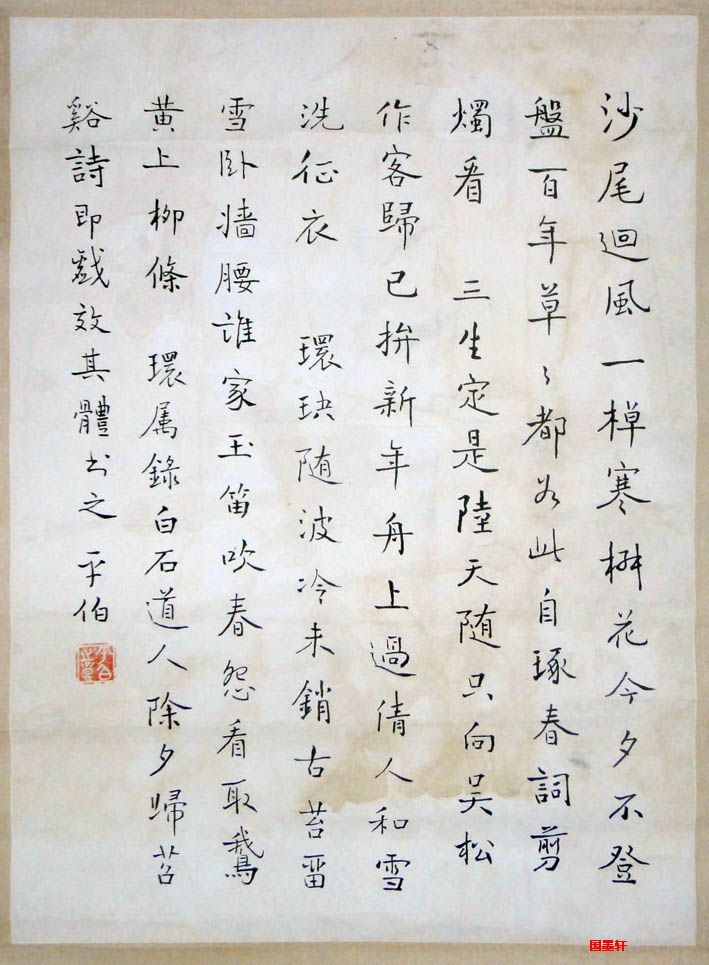 沙尾迴風一棹寒椒花今夕不登
盤百年草〻都如此自琢春詞剪
燭看　三生定是陸天随只向吴松
作客歸已拚新年舟上過倩人和雪
洗征衣　環玦随波冷未銷古苔留
雪卧墻腰誰家玉笛吹春怨看取鵝
黄上柳條　環属錄白石道人除夕歸苕
谿詩即戲效其體书之平伯
国墨轩